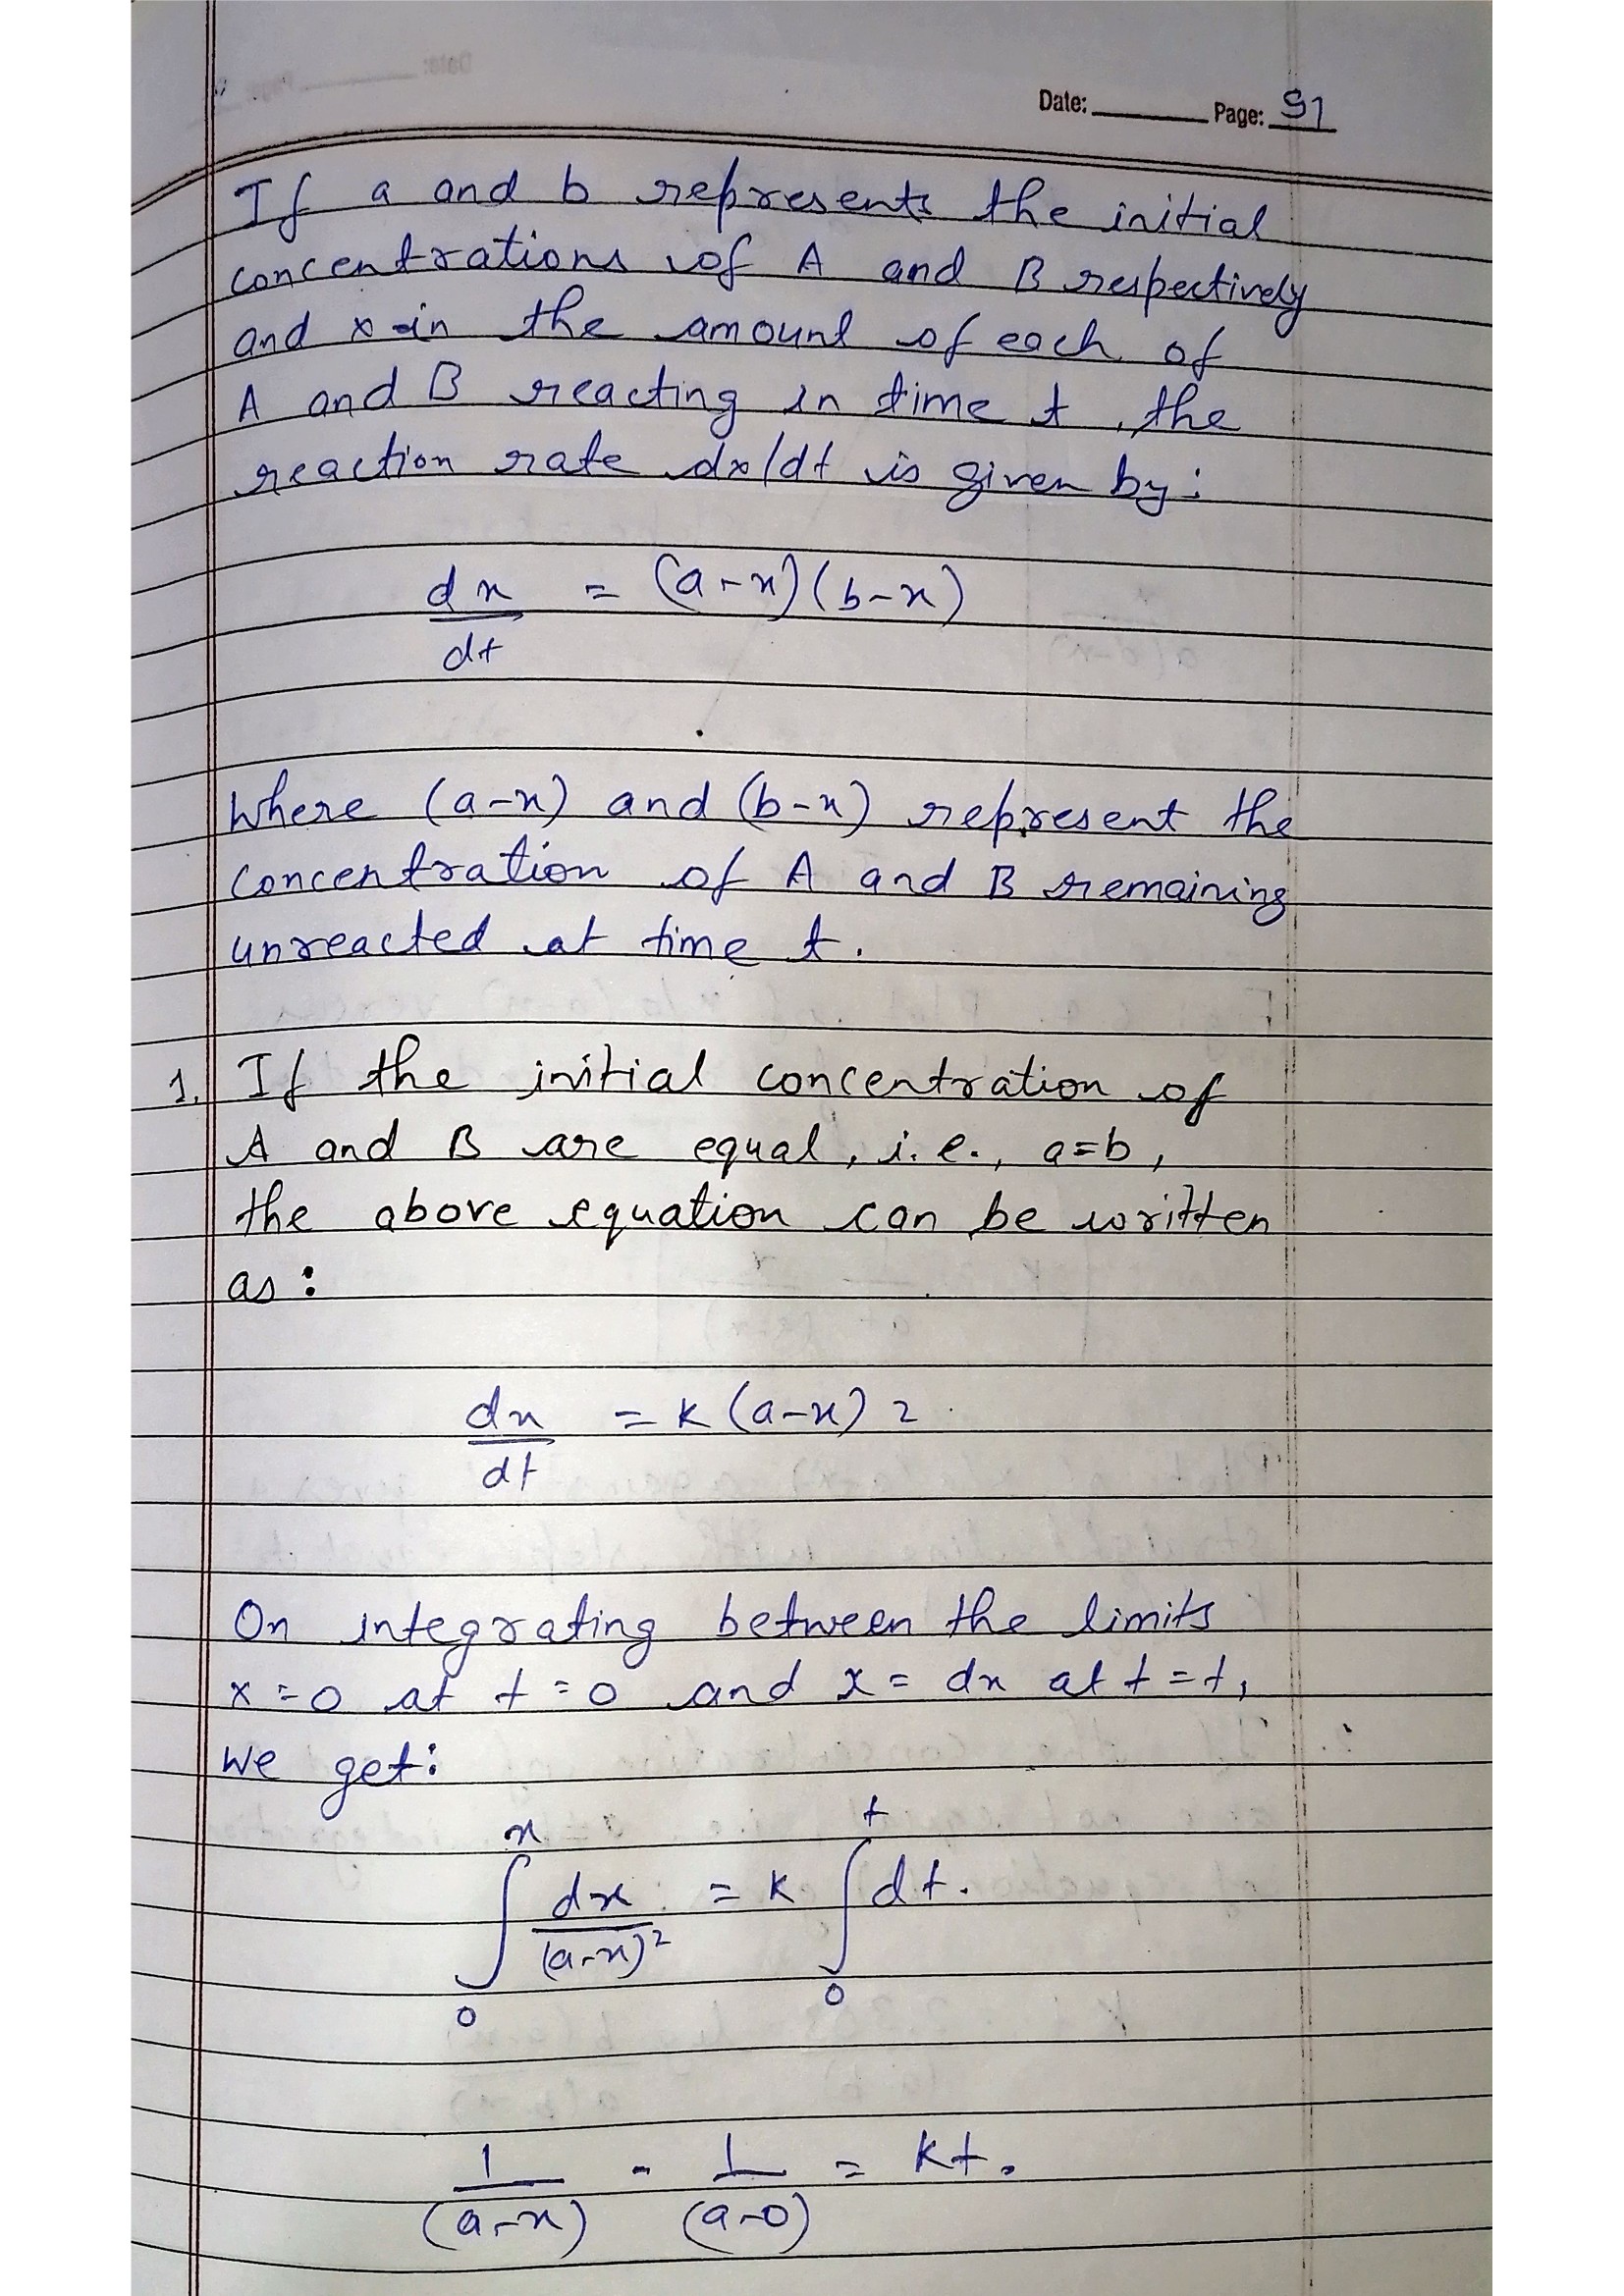 Date: Page: 91
If a and b represents the initial
concentrations of A and B respectively
and x in the amount of each of
A and B reacting in time t, the
reaction rate dx/dt is given by:
dx/dt = (a-x)(b-x)
Where (a-x) and (b-x) represent the
concentration of A and B remaining
unreacted at time t.
1. If the initial concentration of
A and B are equal, i.e., a=b,
the above equation can be written
as:
dx/dt = K(a-x)2
On integrating between the limits
x=0 at t=0 and x= dx at t=t,
we get:
∫₀ˣ dx/(a-x)² = K ∫₀ᵗ dt.
1/(a-x) - 1/(a-0) = Kt.